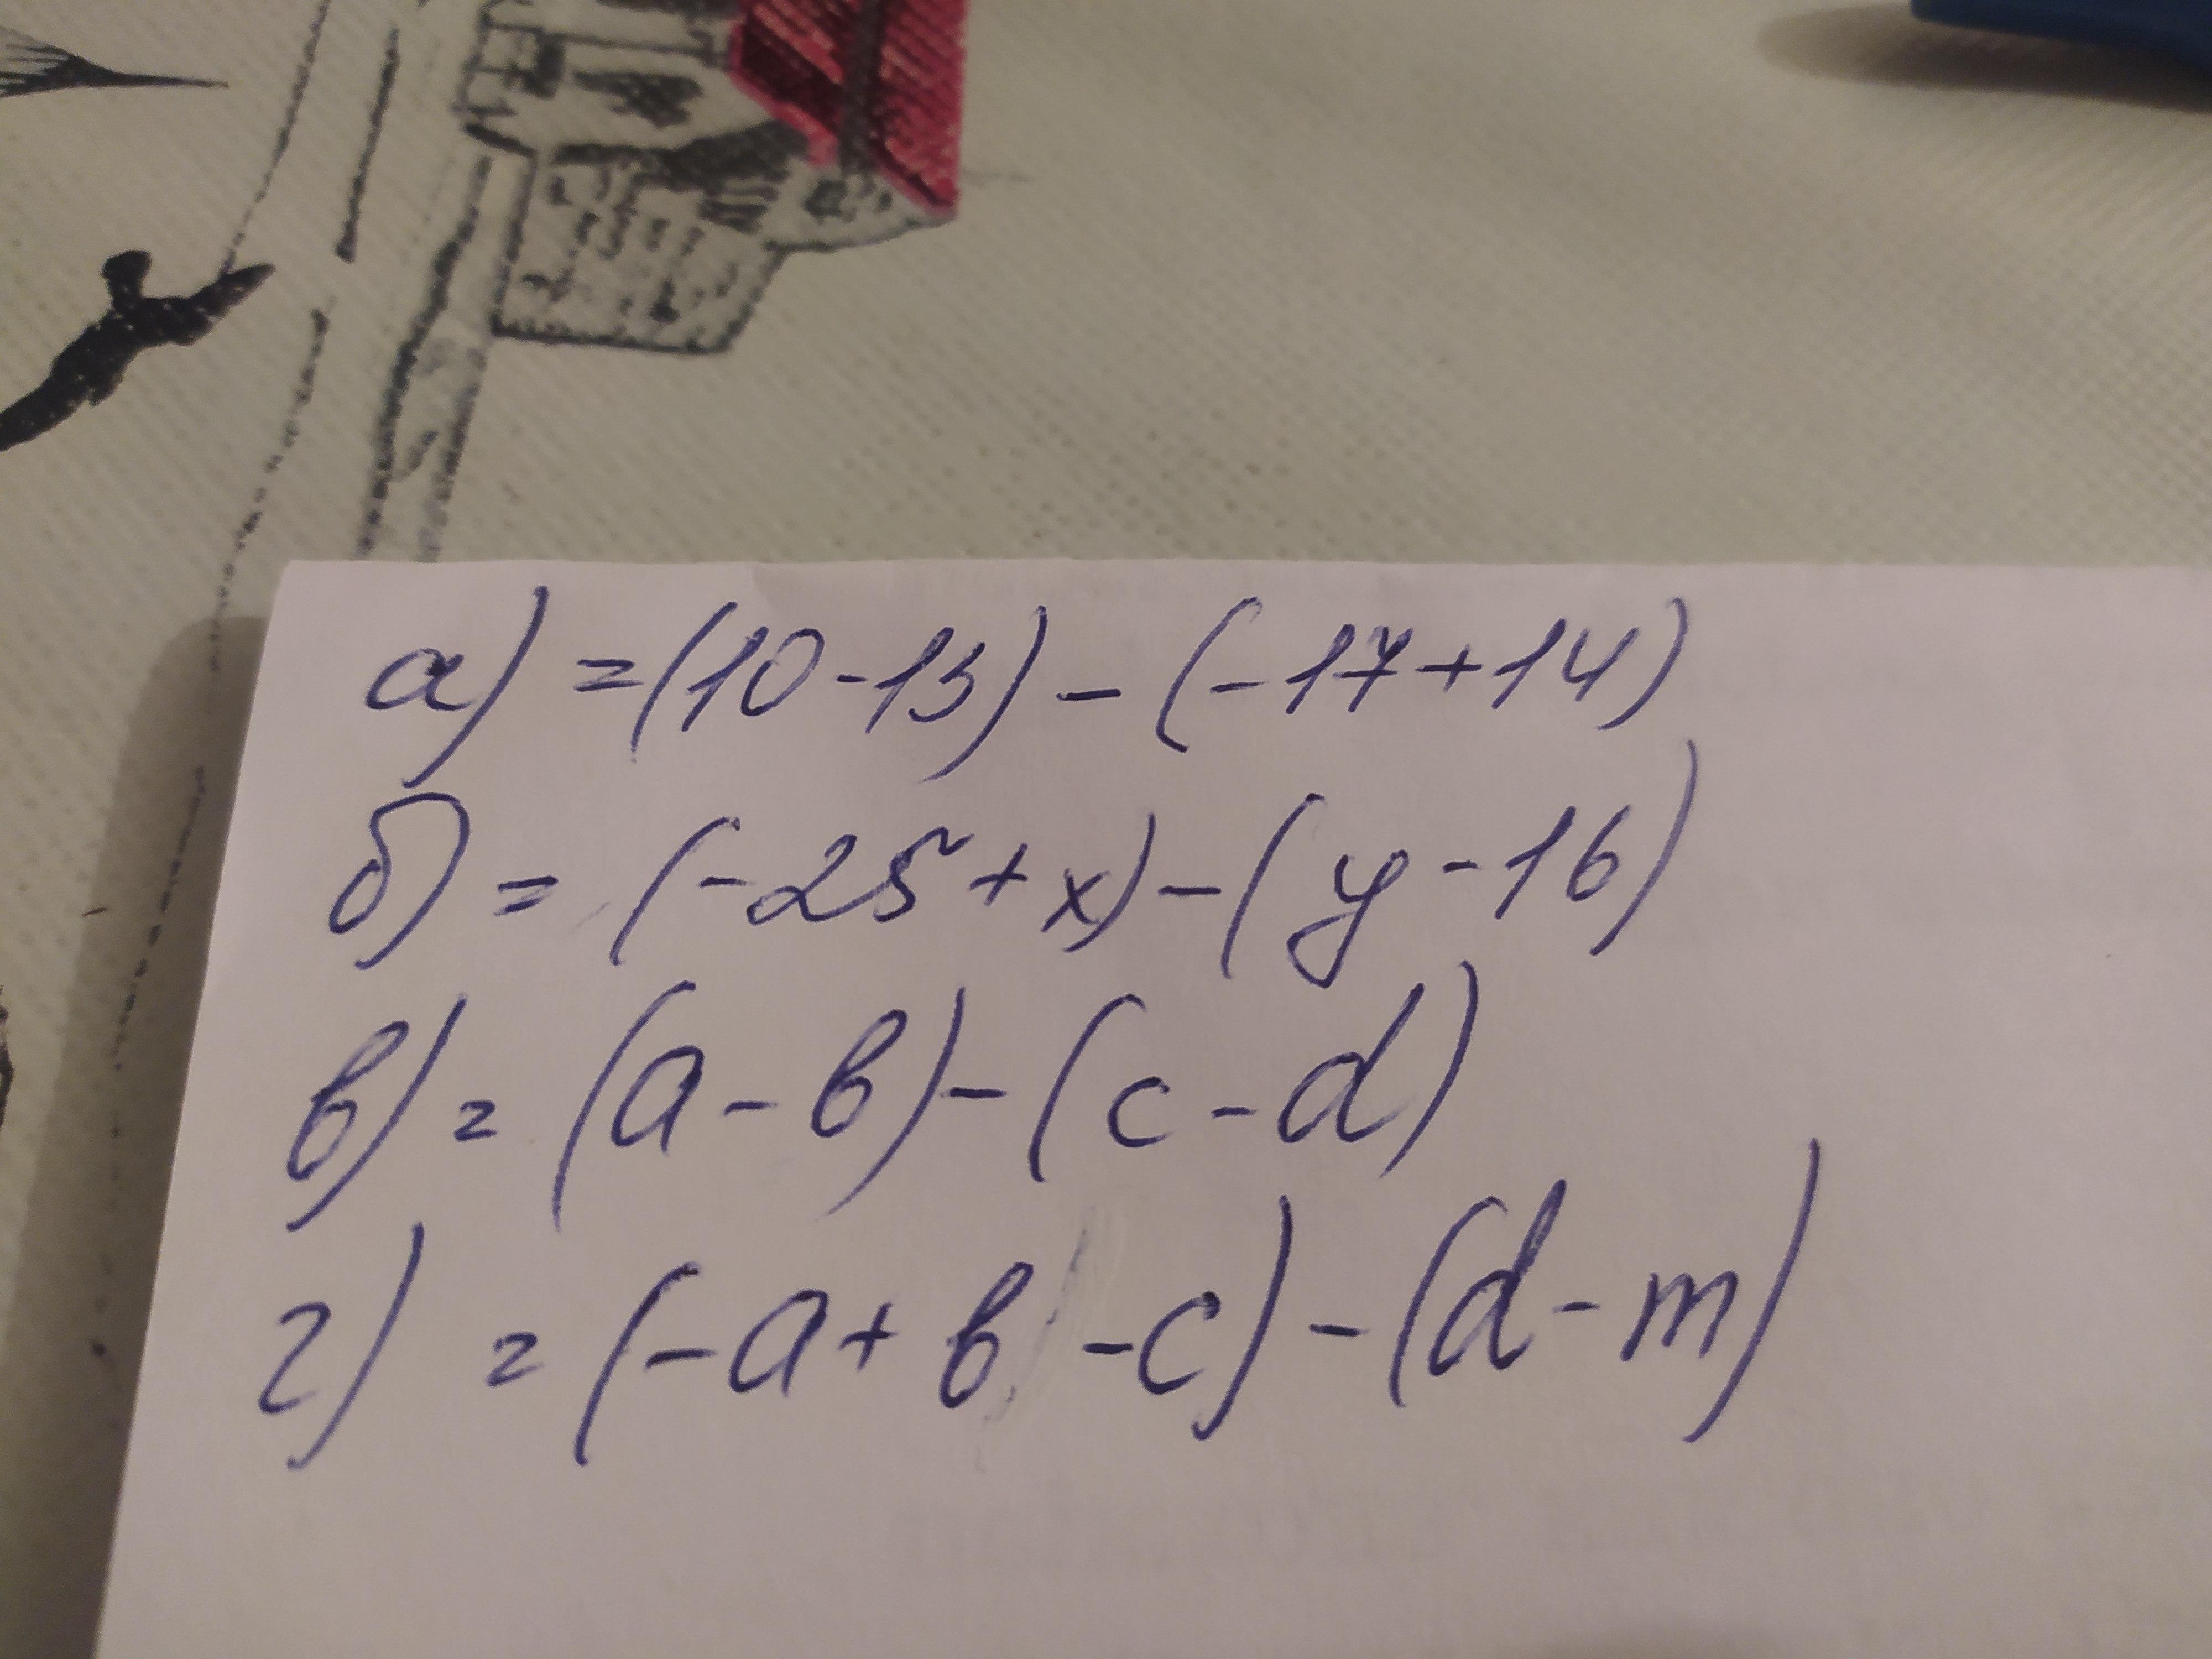 а) =(10-13)-(-17+14)
б) = (-25+x)-(y-16)
в) = (a-b)-(c-d)
г) = (-a+b-c)-(d-m)